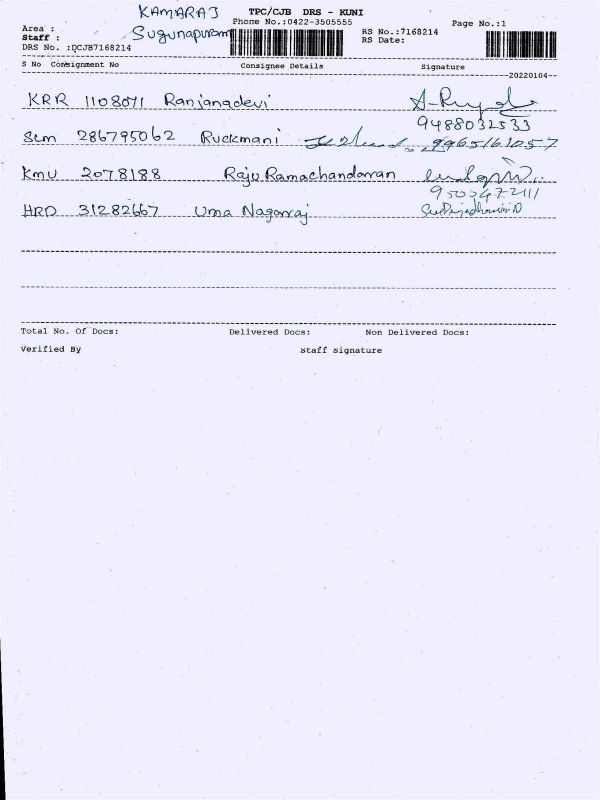 KAMARAJ TPC/CJB DRS - KUNI
Area : Phone No.:0422-3505555 Page No.:1
Staff : Sugunapuram RS No.:7168214
DRS No. :DCJB7168214 RS Date:
S No Consignment No Consignee Details Signature
20220104
KRR 1108071 Ranjanadevi
9488032533
SLM 286795062 Ruckmani 9965161057
KMU 2078188 Raju Ramachandaran
9500472111
HRD 31282667 Uma Nagarraj
Total No. Of Docs: Delivered Docs: Non Delivered Docs:
Verified By Staff Signature